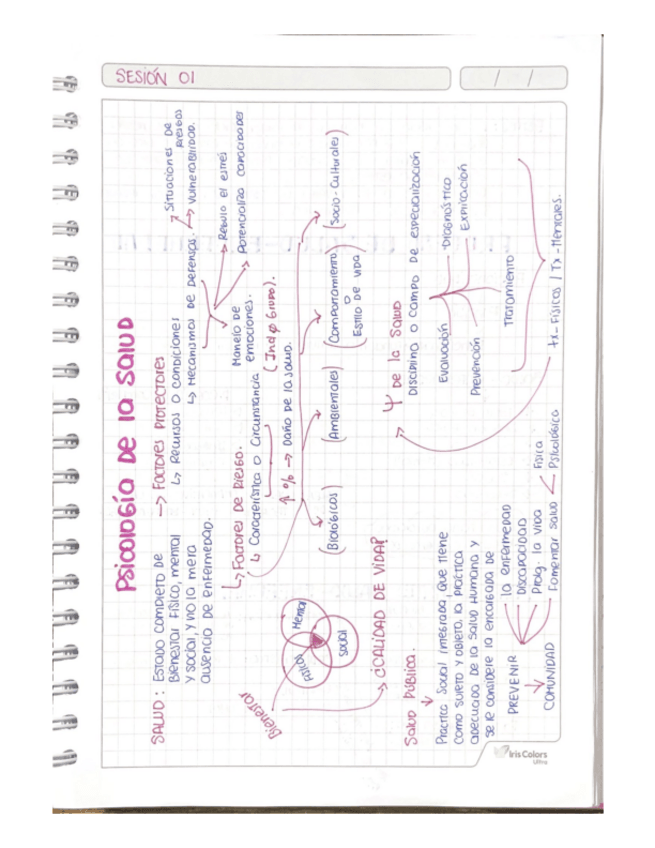 SESIÓN 01
/ /
PSICOLOGÍA DE LA SALUD
SALUD: ESTADO COMPLETO DE
BIENESTAR FÍSICO, MENTAL
Y SOCIAL Y NO LA MERA
AUSENCIA DE ENFERMEDAD.
→ FACTORES PROTECTORES
↳ RECURSOS O CONDICIONES
↳ MECANISMOS DE DEFENSAS.
→ SITUACIONES DE RIESGOS
→ VULNERABILIDAD.
MANEJO DE
EMOCIONES.
REBAJO EL ESTRÉS
POTENCIALIZA CAPACIDADES
↳ FACTORES DE RIESGO.
↳ CARACTERÍSTICA O CIRCUNSTANCIA
(Ind ϕ Grupo).
↑ % → DAÑO DE LA SALUD.
(BIOLÓGICOS)
(AMBIENTALES)
(COMPORTAMIENTO
O
ESTILO DE VIDA)
(SOCIO-CULTURALES)
BIENESTAR
FÍSICO
MENTAL
SOCIAL
→ ¿CALIDAD DE VIDA?
SALUD PÚBLICA.
PRÁCTICA SOCIAL INTEGRADA, QUE TIENE
COMO SUJETO Y OBJETO, LA PRÁCTICA
ADECUADA DE LA SALUD HUMANA Y
SE LE CONSIDERE LA ENCARGADA DE
PREVENIR
COMUNIDAD
LA ENFERMEDAD
DISCAPACIDAD
PROLG. LA VIDA
FOMENTAR SALUD
FÍSICA
PSICOLÓGICA
Ψ DE LA SALUD
DISCIPLINA O CAMPO DE ESPECIALIZACIÓN
EVALUACIÓN
DIAGNÓSTICO
PREVENCIÓN
EXPLICACIÓN
TRATAMIENTO
TX - FÍSICOS / TX - MENTALES.
Iris Colors
Ultra